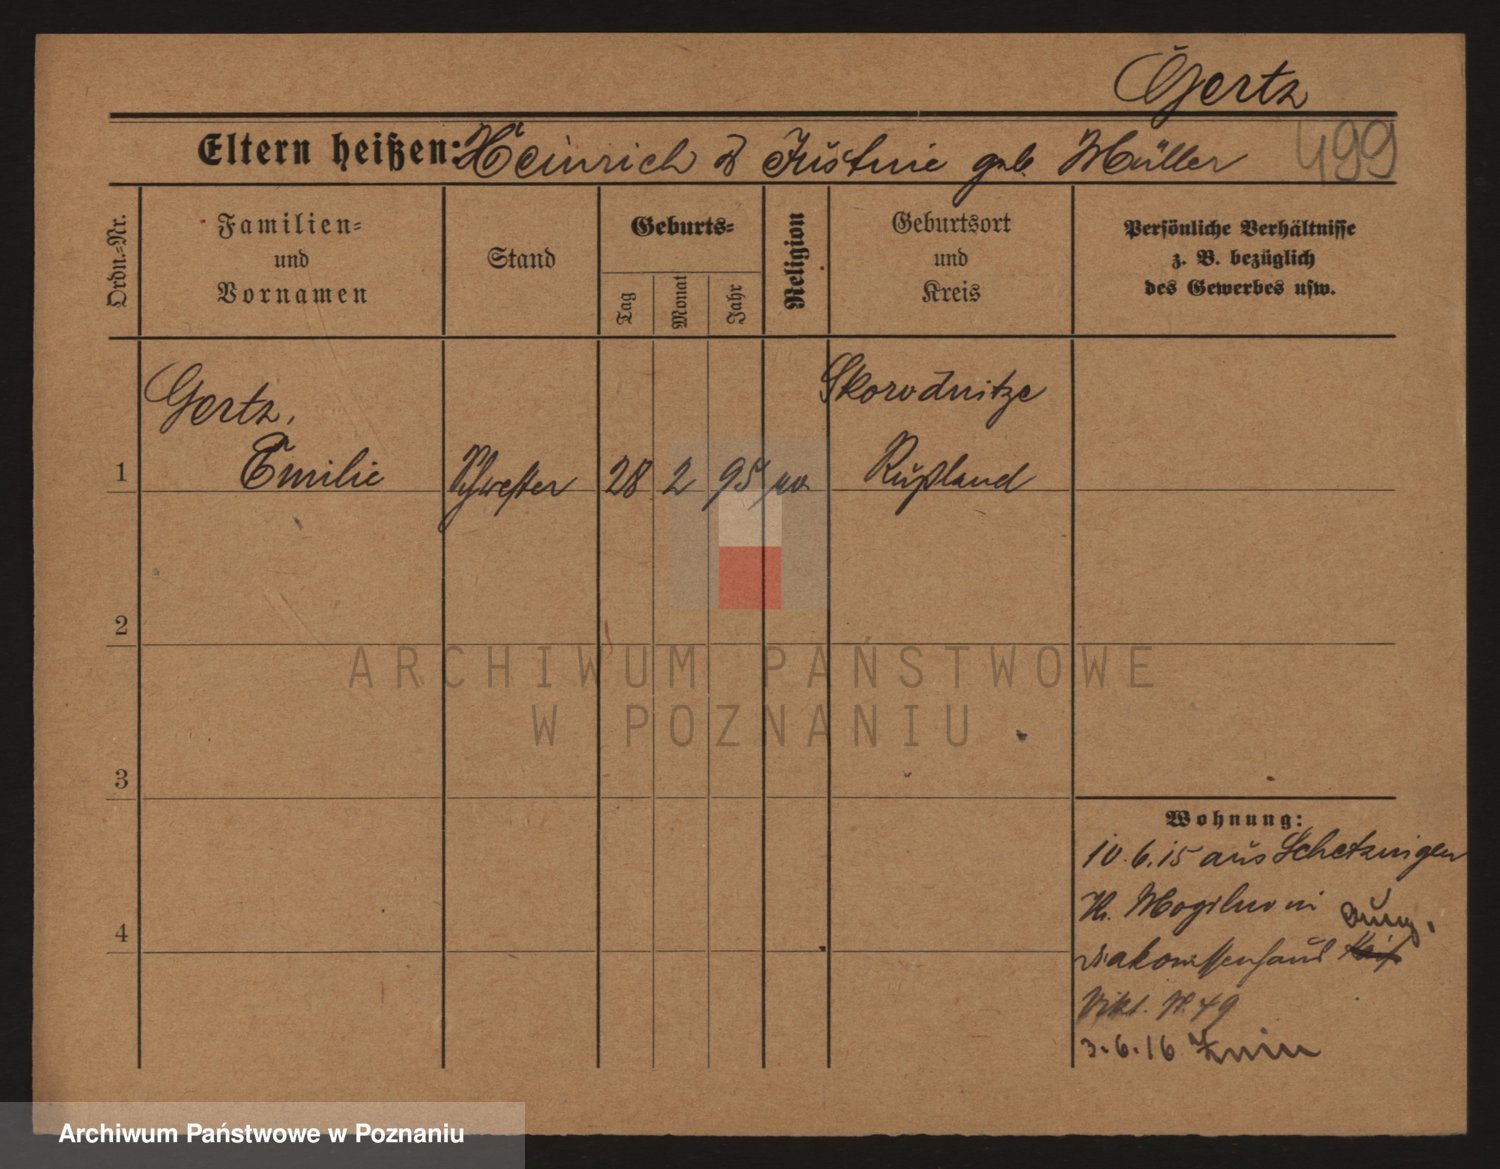 Gertz
Eltern heißen: Heinrich & Justine geb. Müller 499
Ordn.=Nr.
Familien=
und
Vornamen
Stand
Geburts=
Tag
Monat
Jahr
Religion
Geburtsort
und
Kreis
Persönliche Verhältnisse
z. B. bezüglich
des Gewerbes usw.
Gertz,
Skorodnitze
1 Emilie Schwester 28 2 95 ev. Rußland
2
3
4
Wohnung:
10.6.15 aus Schetzingen
Kr. Mogilno in
Diakonissenhaus
Vikt. St. 49
3.6.16 Znin
ARCHIWUM PAŃSTWOWE
W POZNANIU
Archiwum Państwowe w Poznaniu